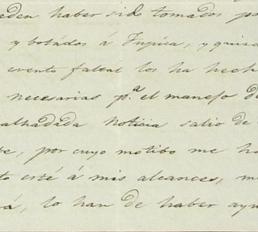 eden haber sido tomados po
y botados á Tupiza, y quiza
evento fatal los ha hech
necesarias p.ª el manejo de
alhadada noticia salio de
e, por cuyo motibo me ha
to esté á mis alcances, m
rá, lo han de haber ayu